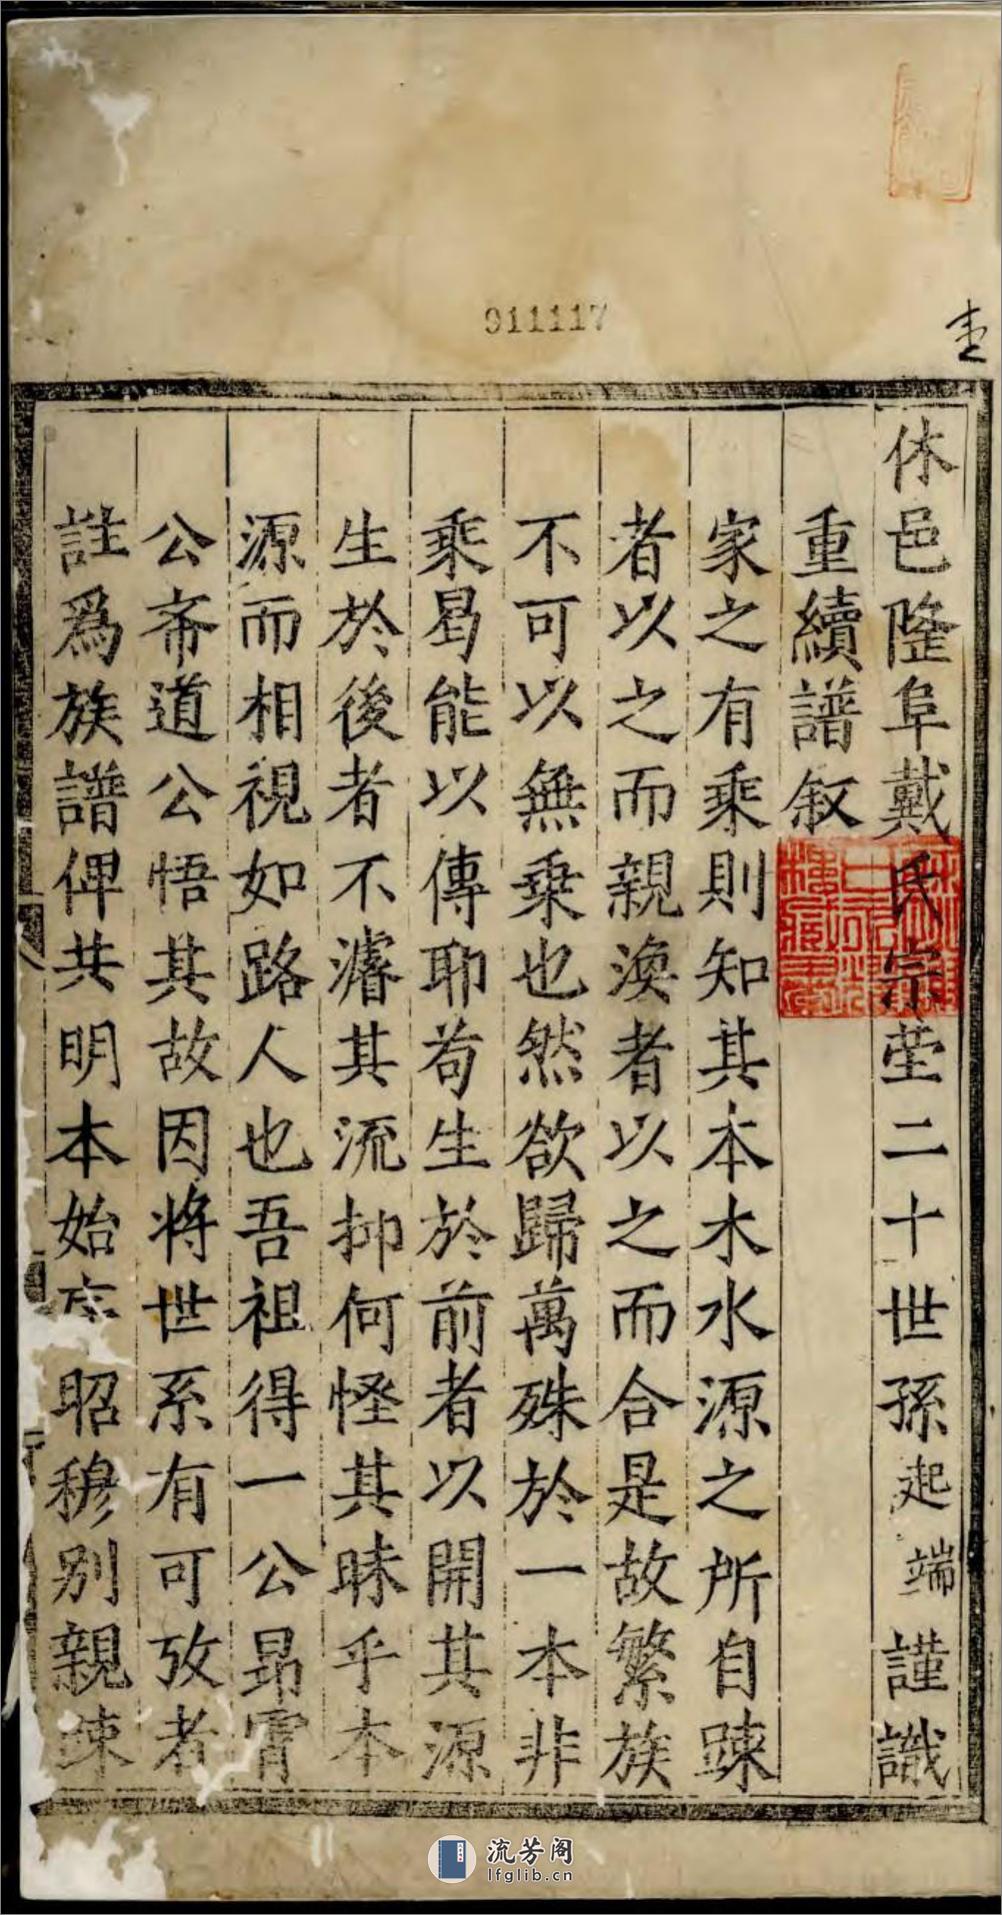 911117
休邑隆阜戴氏宗茔二十世孫起端謹識
重續譜叙
家之有乘則知其本木水源之所自踈
者以之而親渙者以之而合是故繁族
不可以無乗也然欲歸萬殊於一本非
乘曷能以傳耶苟生於前者以開其源
生於後者不濬其流抑何怪其昧乎本
源而相視如路人也吾祖得一公昻霄
公斋道公悟其故因将世系有可攷者
註爲族譜俾共明本始序昭穆别親踈
流芳阁
lfglib.cn